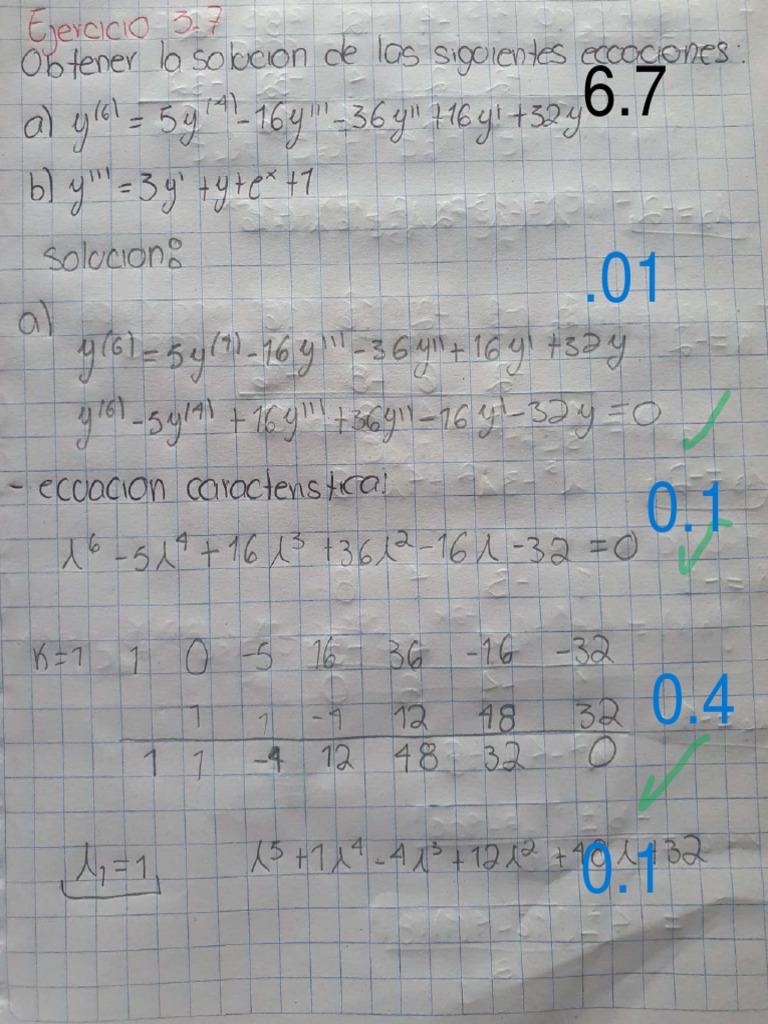 Ejercicio 3.7
Obtener la solucion de las siguientes ecuaciones:
a) y⁽⁶⁾ = 5y⁽⁴⁾ - 16y''' - 36y'' + 16y' + 32y 6.7
b) y''' = 3y' + y + eˣ + 1
solucion:
.01
a)
y⁽⁶⁾ = 5y⁽⁴⁾ - 16y''' - 36y'' + 16y' + 32y
y⁽⁶⁾ - 5y⁽⁴⁾ + 16y''' + 36y'' - 16y' - 32y = 0 ✓
- ecuacion caracteristica: 0.1
λ⁶ - 5λ⁴ + 16λ³ + 36λ² - 16λ - 32 = 0 ✓
K=1 1 0 -5 16 36 -16 -32
1 1 -4 12 48 32 0.4
1 1 -4 12 48 32 0 ✓
λ₁=1 λ⁵ + 1λ⁴ - 4λ³ + 12λ² + 48λ + 32
0.1